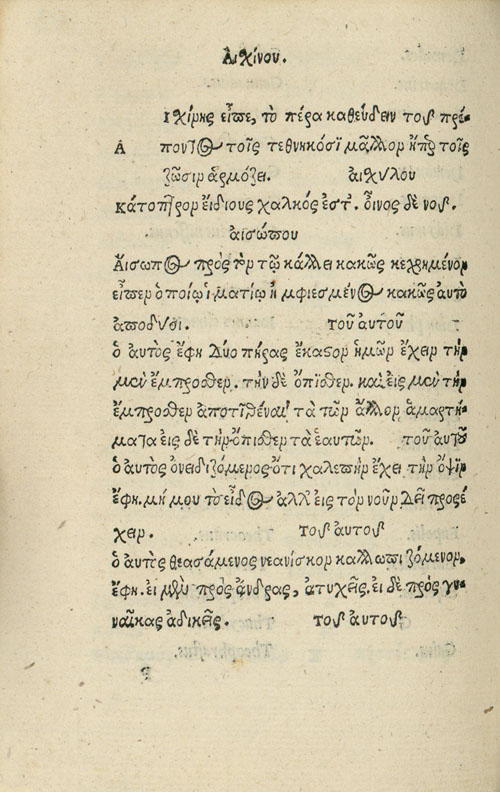 Αιχίνου.
Ιχίρης εἶπε, τὸ πέρα καθεύδειν τοῦ πρέ-
Α ποντος τοῖς τεθνηκόσϊ μᾶλλον ἤπερ τοῖς
ζῶσιν ἁρμόζει. αἰχύλου
κάτοπτρον εἴδιους χαλκός ἐστ. οἶνος δὲ νοῦ.
αἰσώπου
Αἴσωπος πρὸς τὸν τῷ κάλλει κακῶς κεχρημένον
εἶπεν ὁ ποίῳ ἱματίῳ ἠμφιεσμένος κακῶς αὐτὸ
ἀποδύσι. τοῦ αὐτοῦ
ὁ αὐτὸς ἔφη δύο πήρας ἕκαστον ἡμῶν ἔχειν τὴν
μὲν ἔμπροσθεν. τὴν δὲ ὄπισθεν. καὶ εἰς μὲν τὴν
ἔμπροσθεν ἀποτιθέναι τὰ τῶν ἄλλον ἁμαρτή-
ματα εἰς δὲ τὴν ὄπισθεν τὰ ἑαυτῶν. τοῦ αὐτοῦ
ὁ αὐτὸς ὀνειδιζόμενος ὅτι χαλεπὴν ἔχει τὴν ὄψιν
ἔφη. μή μου τὸ εἶδος ἀλλ' εἰς τὸν νοῦν δεῖ προσέ
χειν. τοῦ αὐτοῦ
ὁ αὐτὸς θεασάμενος νεανίσκον καλλωπιζόμενον,
ἔφη. εἰ μὲν πρὸς ἄνδρας, ἀτυχεῖς. εἰ δὲ πρὸς γυ-
ναῖκας ἀδικεῖς. τοῦ αὐτοῦ